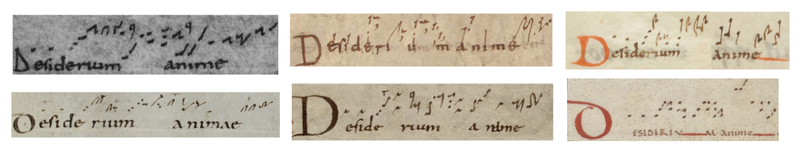 Desiderium anime
Desiderium anime
Desiderium anime
Desiderium animae
Desiderium a nime
DESIDERIV M anime